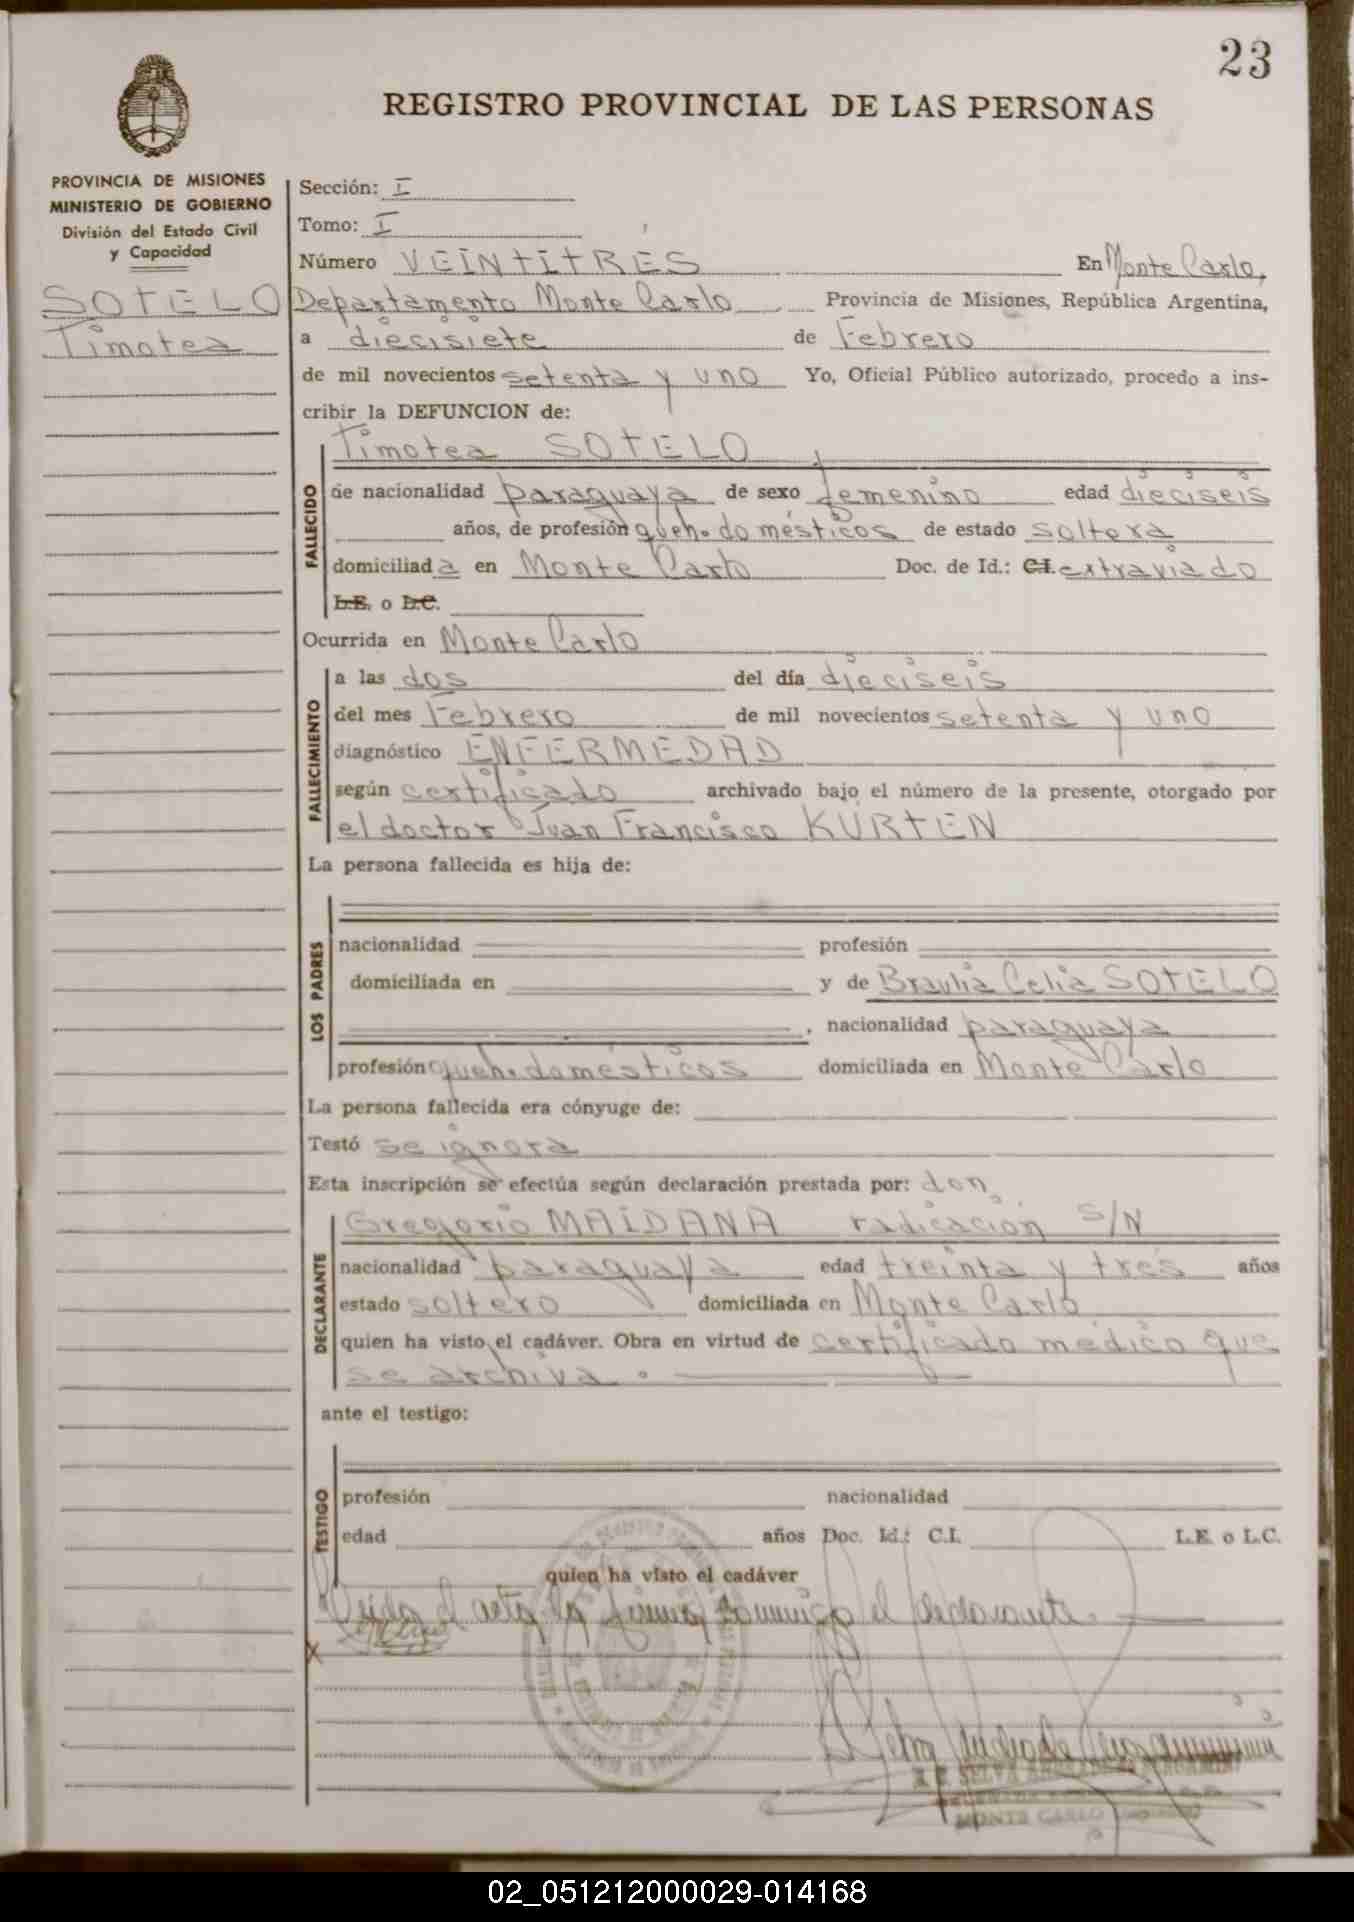 23
REGISTRO PROVINCIAL DE LAS PERSONAS
PROVINCIA DE MISIONES
MINISTERIO DE GOBIERNO
División del Estado Civil
y Capacidad
SOTELO
Timotea
Sección: I
Tomo: I
Número VEINTITRÉS En Monte Carlo,
Departamento Monte Carlo Provincia de Misiones, República Argentina,
a diecisiete de Febrero
de mil novecientos setenta y uno Yo, Oficial Público autorizado, procedo a ins-
cribir la DEFUNCION de:
Timotea SOTELO
FALLECIDO
de nacionalidad paraguaya de sexo femenino edad dieciseis
años, de profesión queh. domésticos de estado soltera
domiciliada en Monte Carlo Doc. de Id.: C.I. extraviado
L.E. o L.C.
Ocurrida en Monte Carlo
FALLECIMIENTO
a las dos del día dieciseis
del mes Febrero de mil novecientos setenta y uno
diagnóstico ENFERMEDAD
según certificado archivado bajo el número de la presente, otorgado por
el doctor Juan Francisco KURTEN
La persona fallecida es hija de:
LOS PADRES
nacionalidad profesión
domiciliada en y de Braulia Celia SOTELO
, nacionalidad paraguaya
profesión queh. domésticos domiciliada en Monte Carlo
La persona fallecida era cónyuge de:
Testó se ignora
Esta inscripción se efectúa según declaración prestada por: don
DECLARANTE
Gregorio MAIDANA radicación S/N
nacionalidad paraguaya edad treinta y tres años
estado soltero domiciliada en Monte Carlo
quien ha visto el cadáver. Obra en virtud de certificado médico que
se archiva.
ante el testigo:
TESTIGO
profesión nacionalidad
edad años Doc. Id.: C.I. L.E. o L.C.
quien ha visto el cadáver
Leida el acta la firma conmigo el declarante.
X
MONTE CARLO
02_051212000029-014168